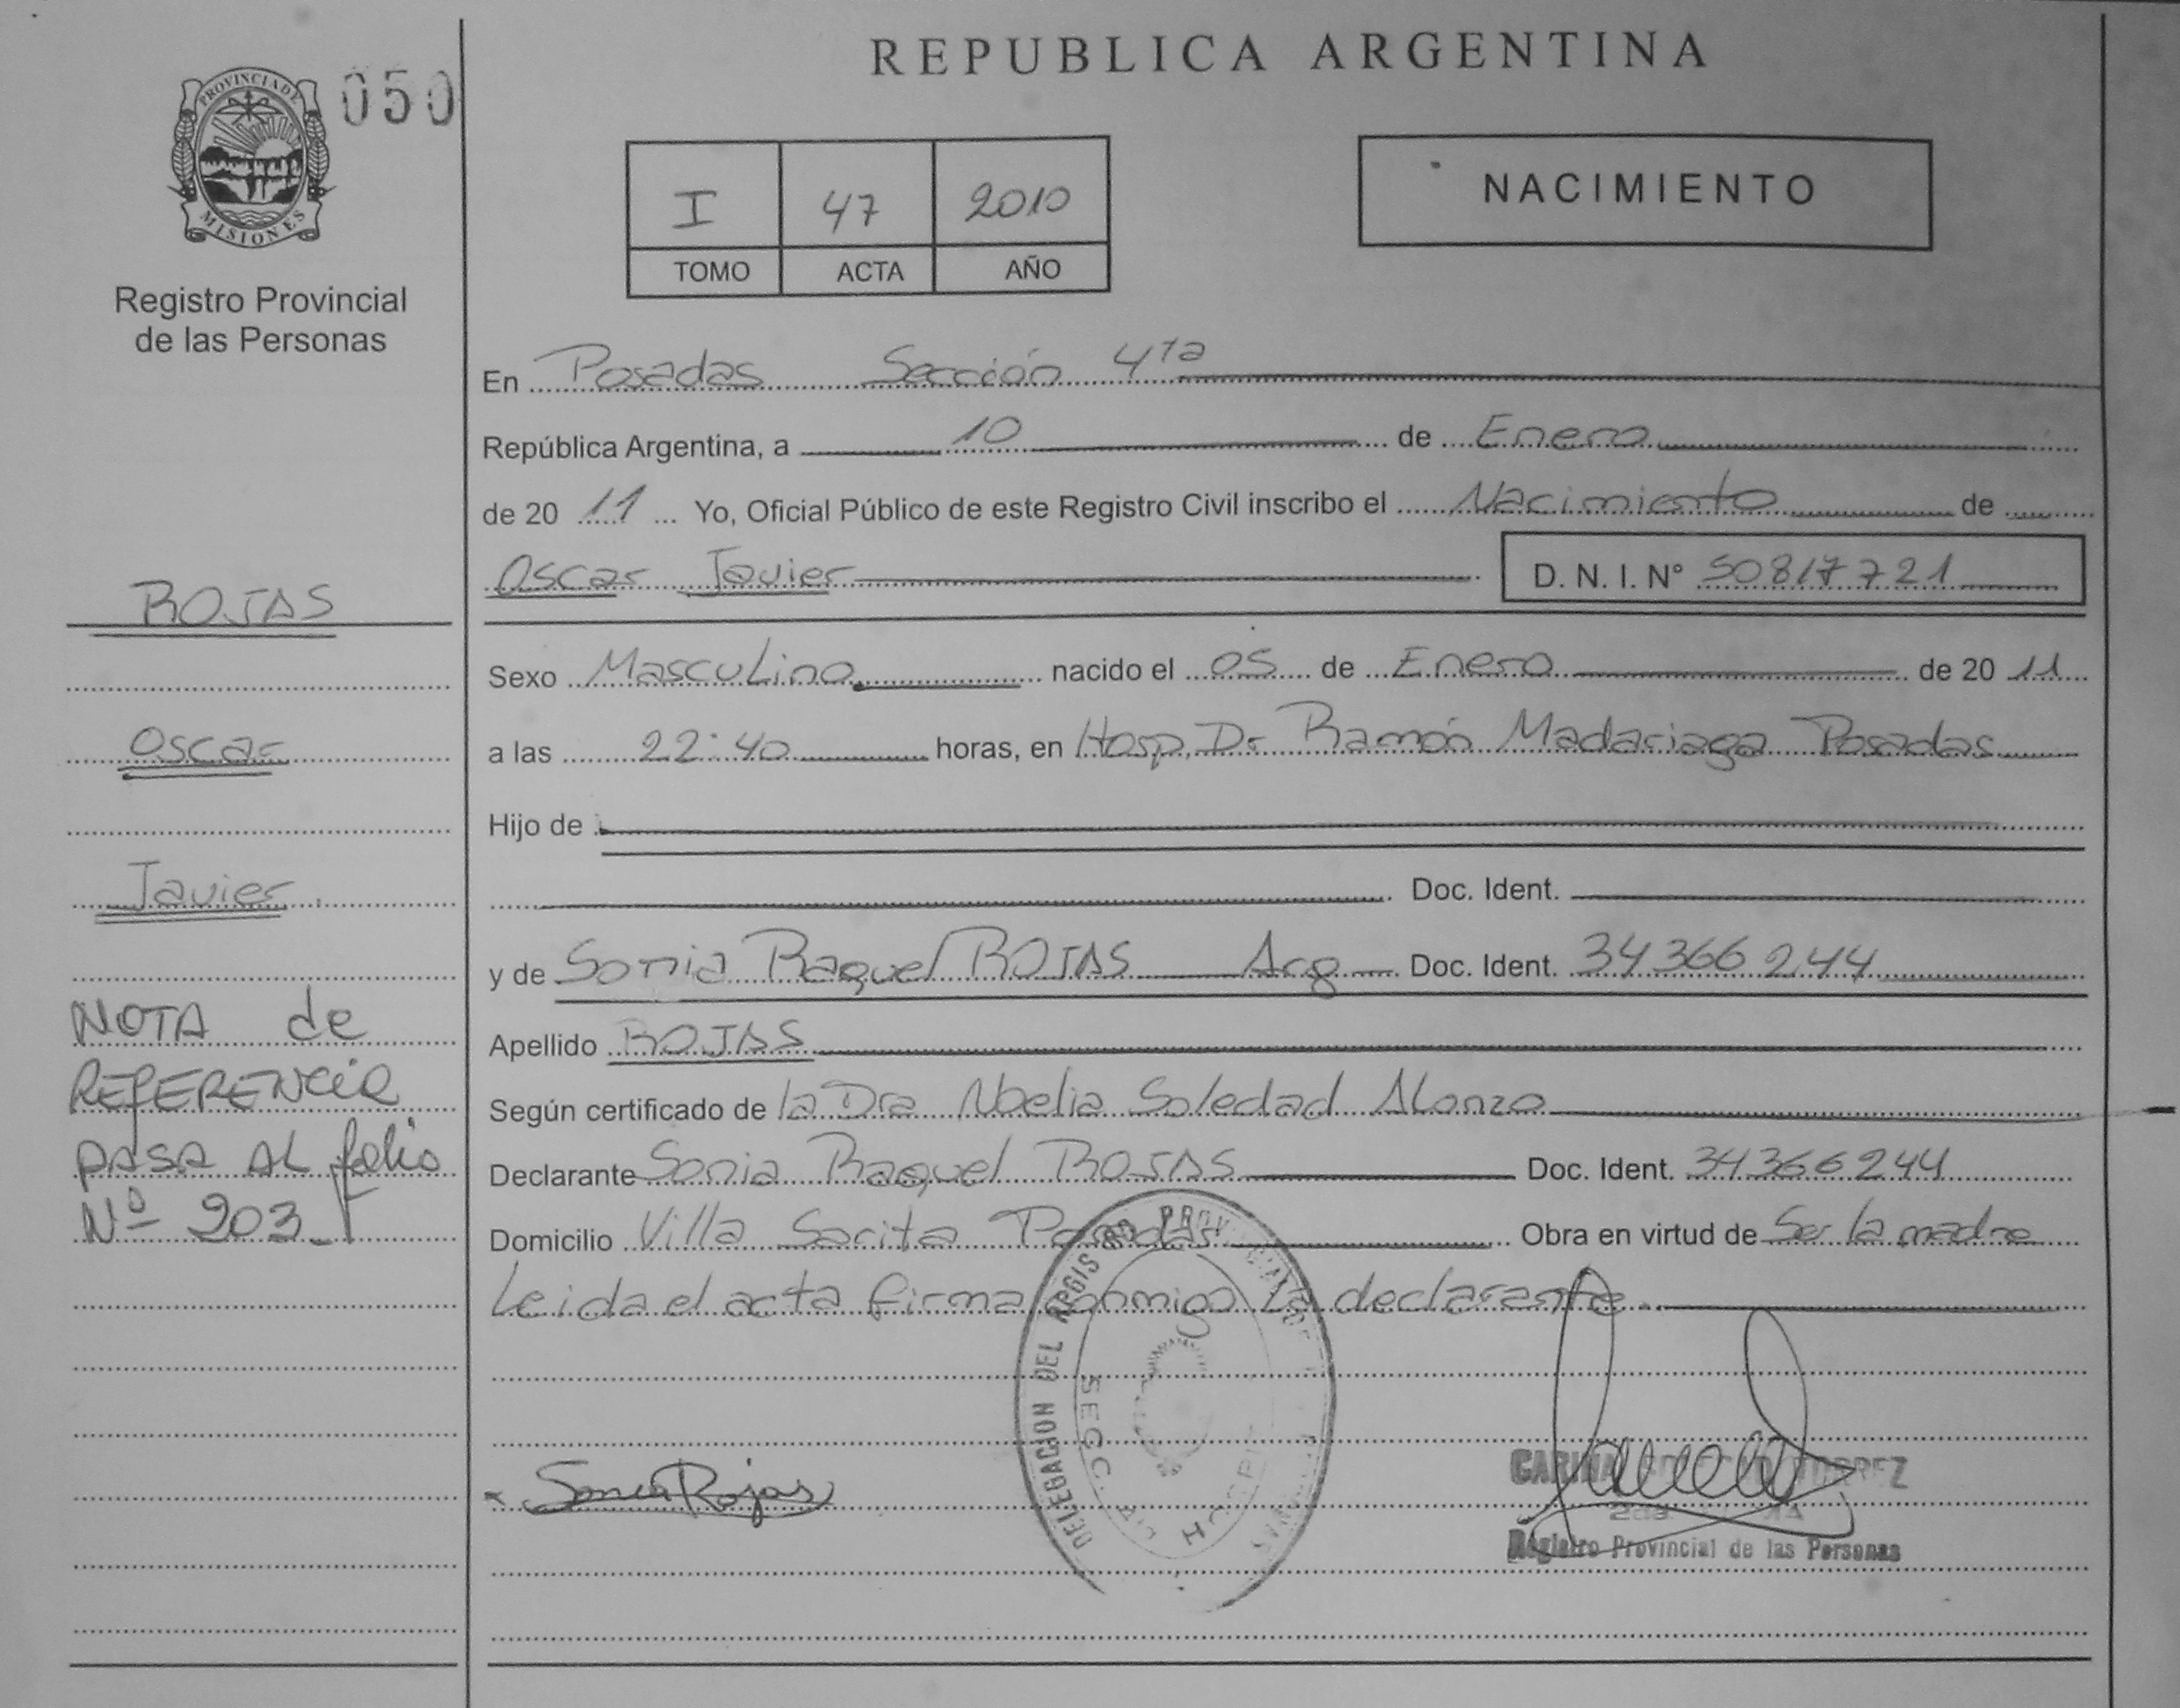 REPUBLICA ARGENTINA
PROVINCIA DE
MISIONES
050
Registro Provincial
de las Personas
I 47 2010
TOMO ACTA AÑO
NACIMIENTO
En Posadas Sección 4ta
República Argentina, a 10 de Enero
de 20 11 Yo, Oficial Público de este Registro Civil inscribo el Nacimiento de
Oscar Javier D. N. I. N° 50817721
Sexo Masculino nacido el 05 de Enero de 20 11
a las 22:40 horas, en Hosp. Dr Ramón Madariaga Posadas
Hijo de
Doc. Ident.
y de Sonia Raquel ROJAS Arg Doc. Ident. 34366244
Apellido ROJAS
Según certificado de la Dra Noelia Soledad Alonzo
Declarante Sonia Raquel ROJAS Doc. Ident. 34366244
Domicilio Villa Sarita Posadas Obra en virtud de Ser la madre
Leida el acta firma conmigo la declarante
ROJAS
Oscar
Javier
NOTA de
REFERENCIA
PASA AL folio
Nº 203
Sonia Rojas
DELEGACION DEL REGISTRO PROVINCIAL DE
SECC.
CARINA
Registro Provincial de las Personas